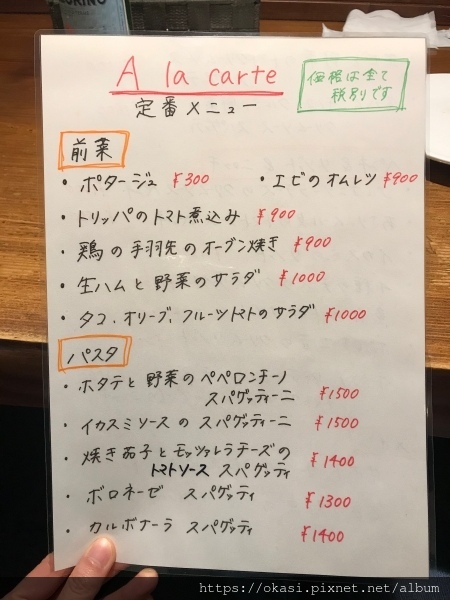 A la carte
定番メニュー
価格は全て
税別です
前菜
・ポタージュ ¥300 ・エビのオムレツ ¥900
・トリッパのトマト煮込み ¥900
・鶏の手羽先のオーブン焼き ¥900
・生ハムと野菜のサラダ ¥1000
・タコ、オリーブ、フルーツトマトのサラダ ¥1000
パスタ
・ホタテと野菜のペペロンチーノ
スパゲッティーニ ¥1500
・イカスミソースの スパゲッティーニ ¥1500
・焼き茄子とモッツァレラチーズの
トマトソース スパゲッティ ¥1400
・ボロネーゼ スパゲッティ ¥1300
・カルボナーラ スパゲッティ ¥1400
https://okasi.pixnet.net/album